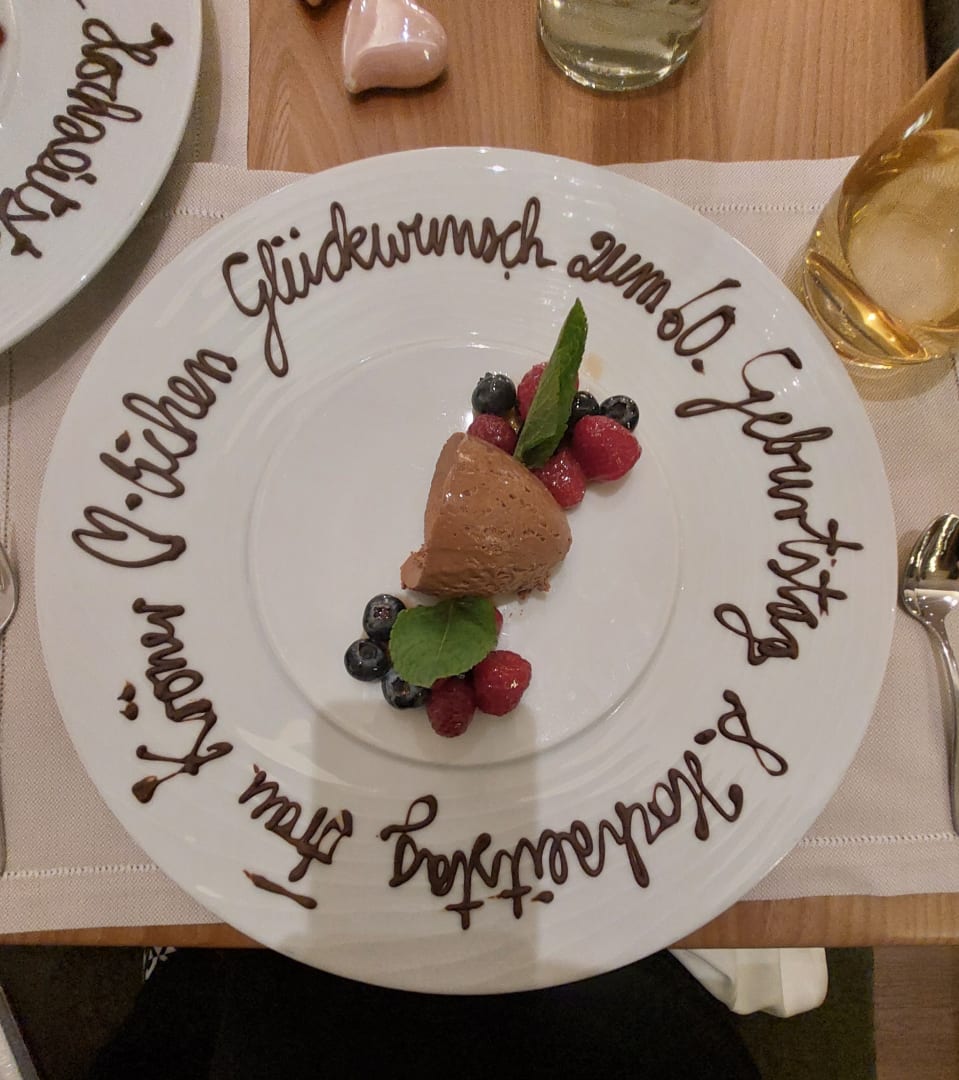 H.lichen Glückwunsch zum 60. Geburtstag 8. Hochzeitstag Frau Kröner
Hochzeitst